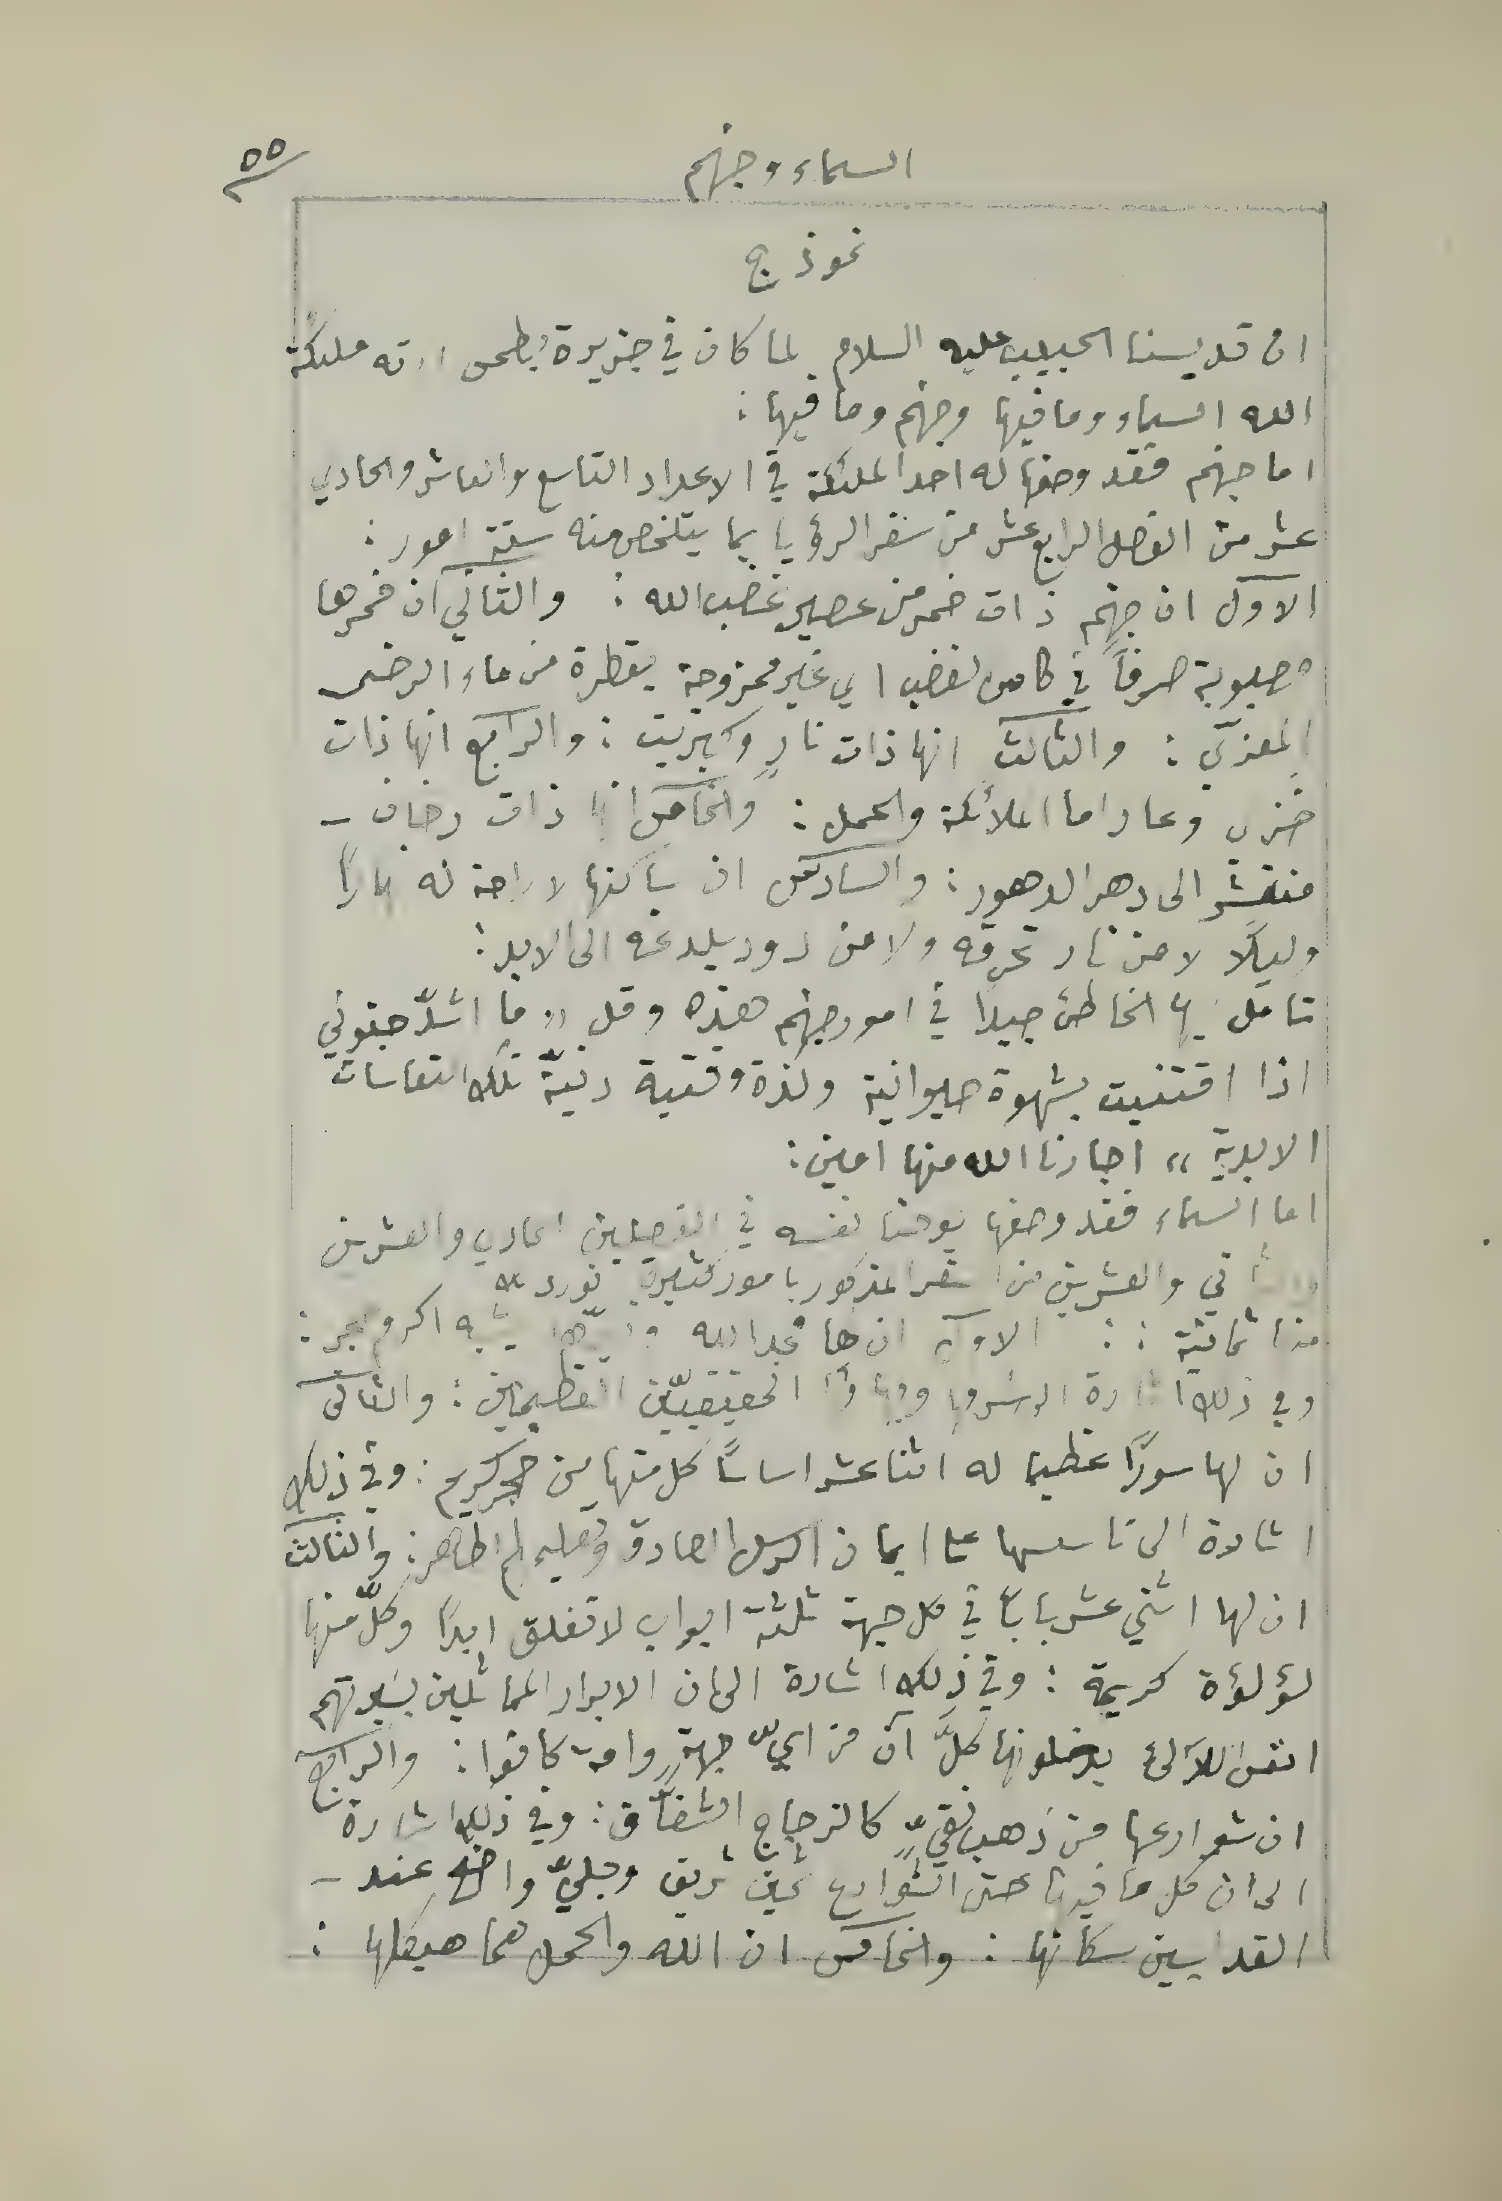 السماء وجهنم
٥٥
نموذج
ان قديسنا الحبيب عليه السلام لما كان في جزيرة بطمس ارته ملئكة
الله السماء وما فيها وجهنم وما فيها :
اما جهنم فقد وصفها له احد الملئكة في الاعداد التاسع والعاشر والحادي
عشر من الفصل الرابع عشر من سفر الرؤيا بما يتلخص منه ستة امور :
الاول ان جهنم ذات خمر من عصير غضب الله : والثاني ان خمرها
مصبوبة صرفاً في كاس لغضب اي غير ممزوجة بقطرة من ماء الرضى
المعزي : والثالث انها ذات نارٍ وكبريت : والرابع انها ذات
خزي وعار امام الملائكة والحمل : والخامس انها ذات دخان –
منتشر الى دهر الدهور : والسادس ان ساكنها لا راحة له نهارًا
وليلًا لا من نار تحرقه ولا من دود يلدغه الى الابد :
تامل ايها الخاطئ جيدًا في امور جهنم هذه وقل „ ما اشدّ جنوني
اذا اقتنيت بشهوة حيوانية ولذة وقتية دنيّة تلك التعاسات
الابدية “ اجارنا الله منها امين :
اما السماء فقد وصفها يوحنا نفسه في الفصلين الحادي والعشرين
والثاني والعشرين من السفر المذكور بامور كثيرة نورد
منها ثمانية : : الاول ان لها مجد الله يشبه اكرم حجر :
وفي ذلك اشارة الى الحقيقيّين العظيمين : والثاني
ان لها سورًا عظيما له اثنا عشر اساسًا كل منها من حجر كريم : وفي ذلك
اشارة الى تاسسها على ايمان الرسل الصادق وتعليمهم الطاهر : والثالث
ان لها اثني عشر بابًا في كل جهة ثلثة ابواب لا تغلق ابدًا وكلّ منها
لؤلؤة كريمة : وفي ذلك اشارة الى ان الابرار المماثلين بسيرتهم
انفس اللآلئ يدخلونها كلَّ آن من ايّ جهةٍ وامة كانوا : والرابع
ان شوارعها من ذهب نقيٍّ كالزجاج الشفّاف : وفي ذلك اشارة
الى ان كل ما فيها حتى الشوارع ثمين شريف وجليّ واضح عند –
القديسين سكانها : والخامس ان الله والحمل هما هيكلها :